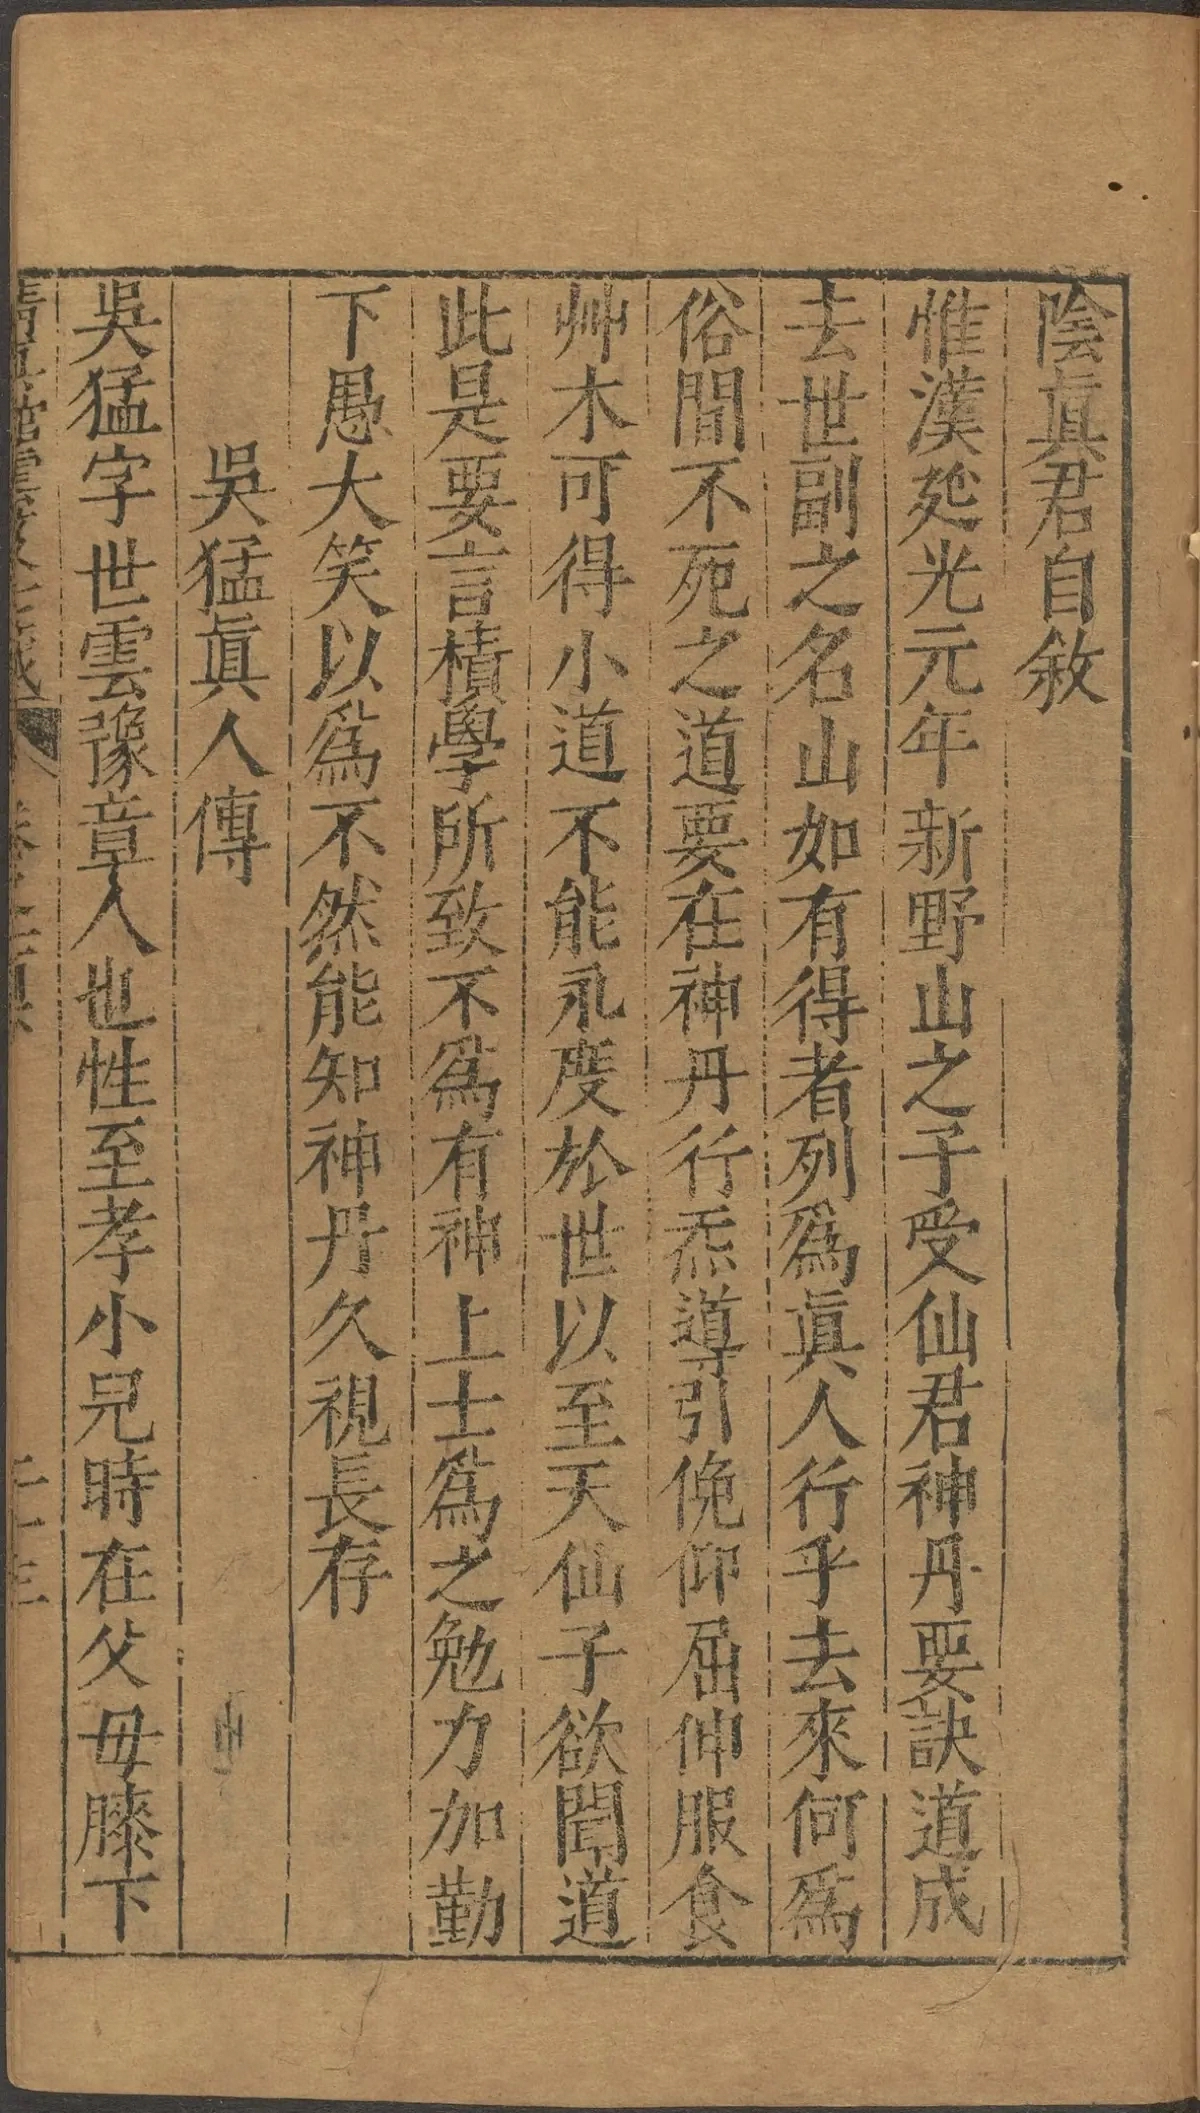 陰眞君自敘
惟漢延光元年新野山之子受仙君神丹要訣道成
去世副之名山如有得者列爲眞人行乎去來何爲
俗間不死之道要在神丹行炁導引俛仰屈伸服食
艸木可得小道不能永度於世以至天仙子欲聞道
此是要言積學所致不爲有神上士爲之勉力加勤
下愚大笑以爲不然能知神丹久視長存
吳猛眞人傳
吳猛字世雲豫章人也性至孝小兒時在父母膝下